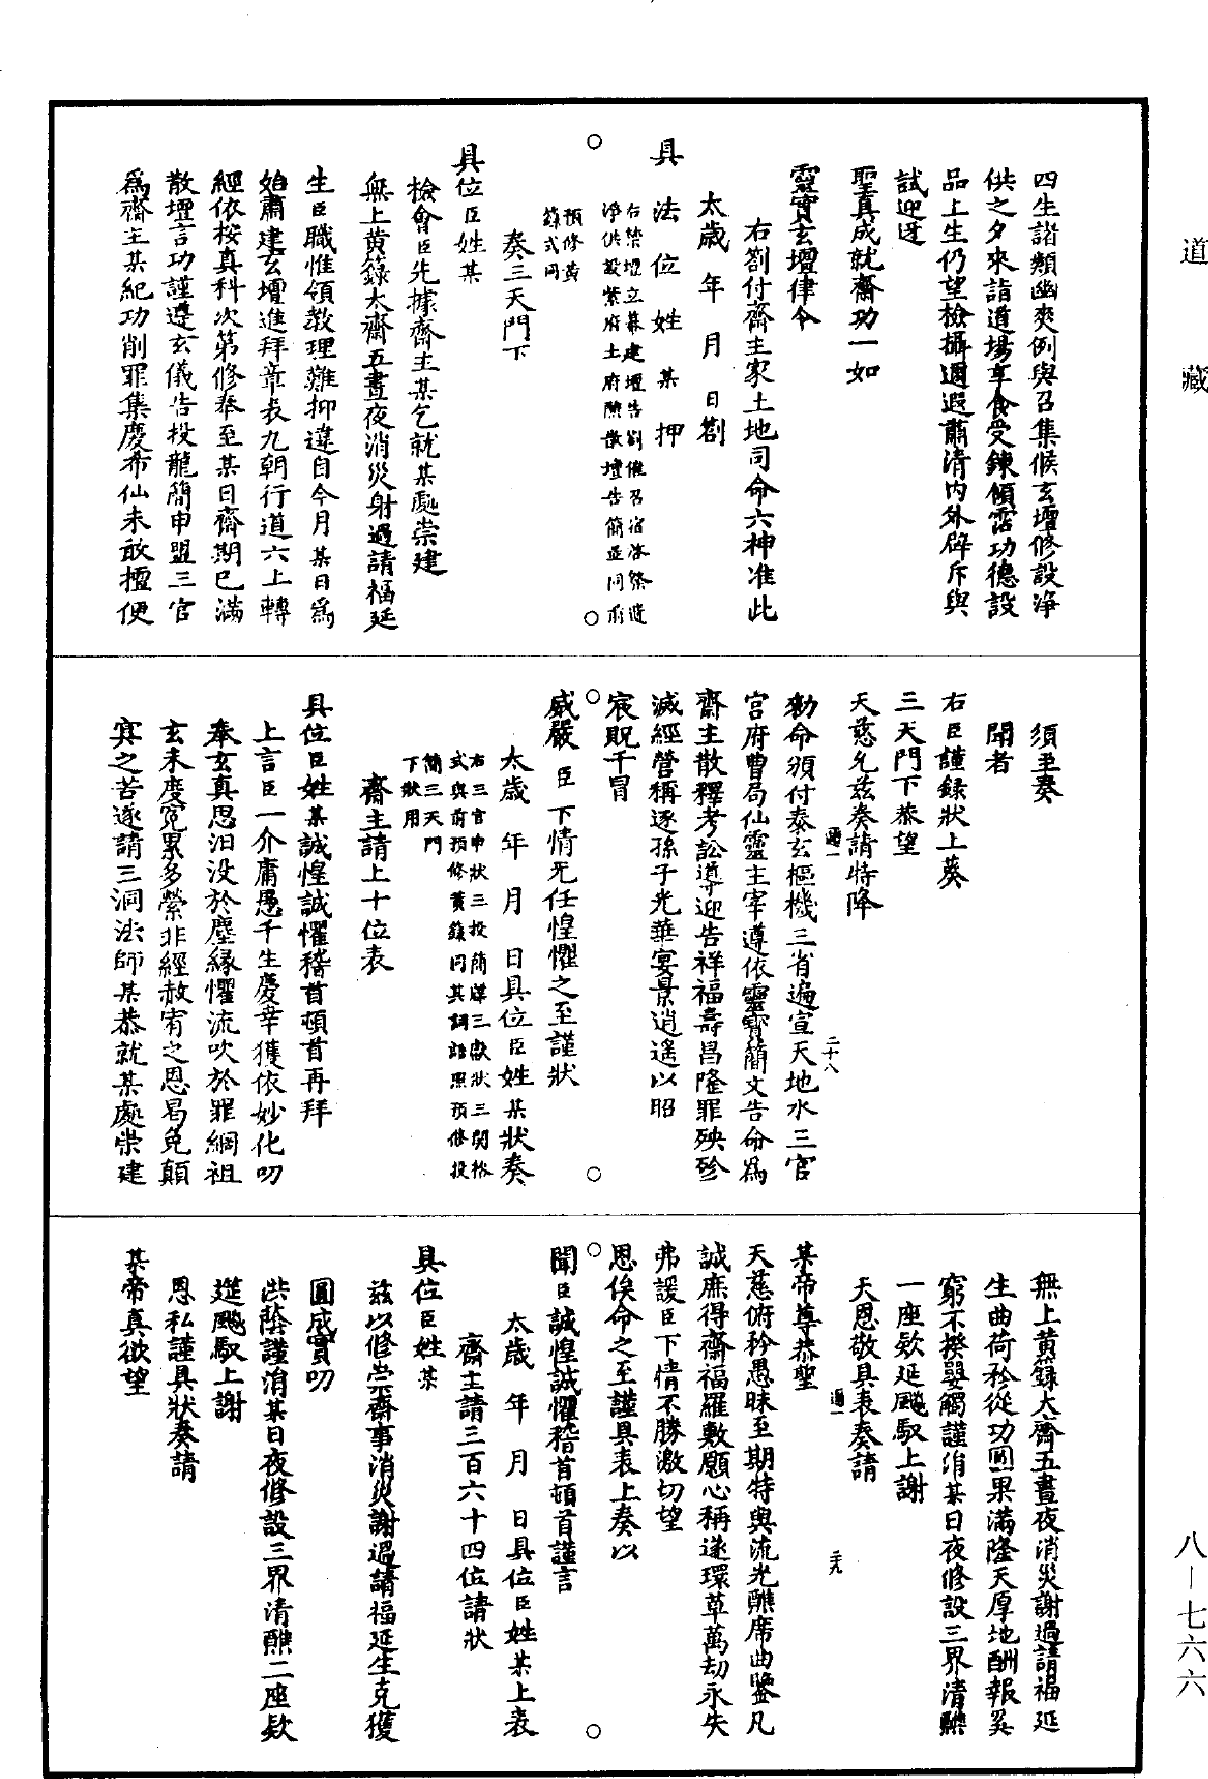 道藏
四生諸類幽爽例與召集候玄壇修設淨
供之夕來詣道場享食受鍊傾霑功德設
品上生仍望檢攝邇遐肅清內外辟斥與
試迎迓
聖真成就齋功一如
靈寶玄壇律令
右劄付齋主家土地司命六神准此
太歲　年　月　日劄
具　法　位　姓　某　押
右禁壇立幕建壇告劄催召宿啓祭造
淨供設紫府土府醮散壇告簡並同前
預修黃
籙式同
奏三天門下
具位臣姓某
檢會臣先據齋主某乞就某處崇建
無上黃籙大齋五晝夜消災謝過請福延
生臣職惟領教理難抑違自今月某日爲
始肅建玄壇進拜章表九朝行道六上轉
經依按真科次第修奉至某日齋期已滿
散壇言功謹遵玄儀告投龍簡申盟三官
爲齋主某紀功削罪集慶布仙未敢擅便
須至奏
聞者
右臣謹錄狀上奏
三天門下恭望
天慈允茲奏請特降
勑命頒付泰玄樞機三省遍宣天地水三官
宮府曹局仙靈主宰遵依靈寶簡文告命爲
齋主散釋考訟導迎吉祥福壽昌隆罪殃殄
滅經營稱遂孫子光華宴景逍遙以昭
宸貺干冒
威嚴臣下情无任惶懼之至謹狀
太歲　年　月　日具位臣姓某狀奏
右三官申狀三投簡牒三獻狀三關格
式與前預修黃籙同其詞語照預修投
簡三天門
下狀用
齋主請上十位表
具位臣姓某誠惶誠懼稽首頓首再拜
上言臣一介庸愚千生慶幸獲依妙化叨
奉玄真思汩没於塵緣懼流吹於罪網祖
玄未度冤累多縈非經赦宥之恩曷免顛
冥之苦遂請三洞法師某恭就某處崇建
無上黃籙大齋五晝夜消災謝過請福延
生曲荷矜從功圓果滿隆天厚地酬報奚
窮不揆嬰觸謹涓某日夜修設三界清醮
一座欵延飈馭上謝
天恩敬具表奏請
某帝尊恭望
天慈俯矜愚昧至期特與流光醮席曲鑒凡
誠庶得齋福羅敷願心稱遂環草萬劫永失
弗諼臣下情不勝激切望
恩俟命之至謹具表上奏以
聞臣誠惶誠懼稽首頓首謹言
太歲　年　月　日具位臣姓某上表
齋主請三百六十四位請狀
具位臣姓某
茲以修崇齋事消災謝過請福延生克獲
圓成實叨
洪蔭謹涓某日夜修設三界清醮二座欵
延飈馭上謝
恩私謹具狀奏請
某帝真欲望
通一
二十八
通一
二十九
八―七六六